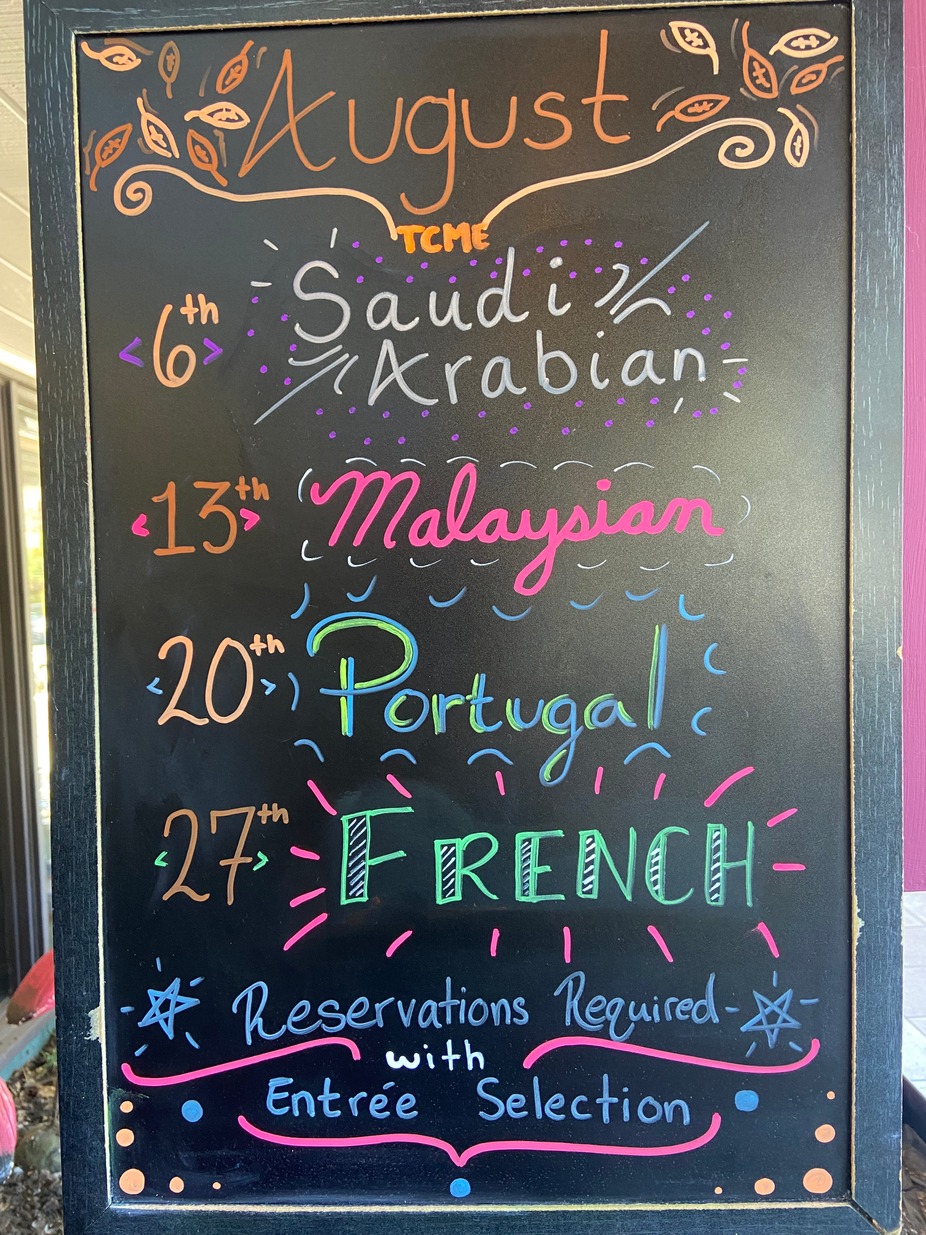 August
TCME
<6th> Saudi
Arabian
<13th> Malaysian
<20th> Portugal
<27th> FRENCH
Reservations Required
with
Entrée Selection